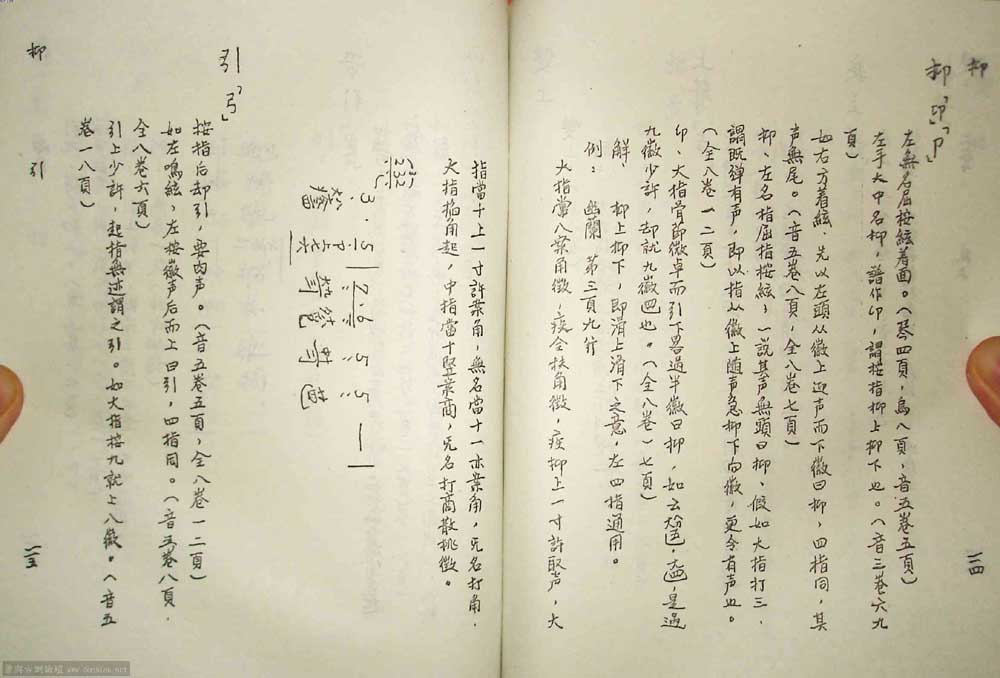 抑
一一四
抑「印」「卩」
左無名屈按絃着面。(琴四頁，烏八頁，音五卷五頁)
左手大中名抑，譜作印，謂按指抑上抑下也。(音三卷六九
頁)
如右方着絃，先以左頭从徽上迎声而下徽曰抑，四指同，其
声無尾。(音五卷八頁，全八卷七頁)
抑、左名指屈指按絃，一說其声無頭曰抑、假如大指打三、
謂既弹有声，即以指从徽上随声急抑下向徽，更令有声也。
(全八卷一二頁)
印、大指骨節微卓而引下畧過半徽曰抑，如云
九徽少許，却就九徽巴也。(全八卷)七頁)
解： 抑上抑下，即滑上滑下之意，左四指通用。
例： 幽蘭 第三頁九行
大指當八案角徵，疾全扶角徵，疾抑上一寸許取声，大
指當十上一寸許案角，無名當十一亦案角，无名打角，
大指掐角起，中指當十竪案商，无名打商散挑徵。
3· 5 | 2· 6 5 5 — |
引「弓」
按指后却引，要内声。(音五卷五頁，全八卷一二頁)
如左鳴絃，左按徽声后而上曰引，四指同。(音五卷八頁，
全八卷六頁)
引上少許，起指無迹謂之引。如大指按九就上八徽。(音五
卷一八頁)
抑 引
一一五
www.donsina.net